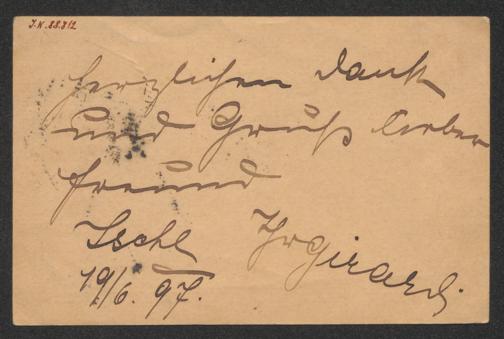 I.N. 88.812
Herzlichen Dank
und Gruß lieber
Freund
Ischl Ihr Girardi
19/6. 97.